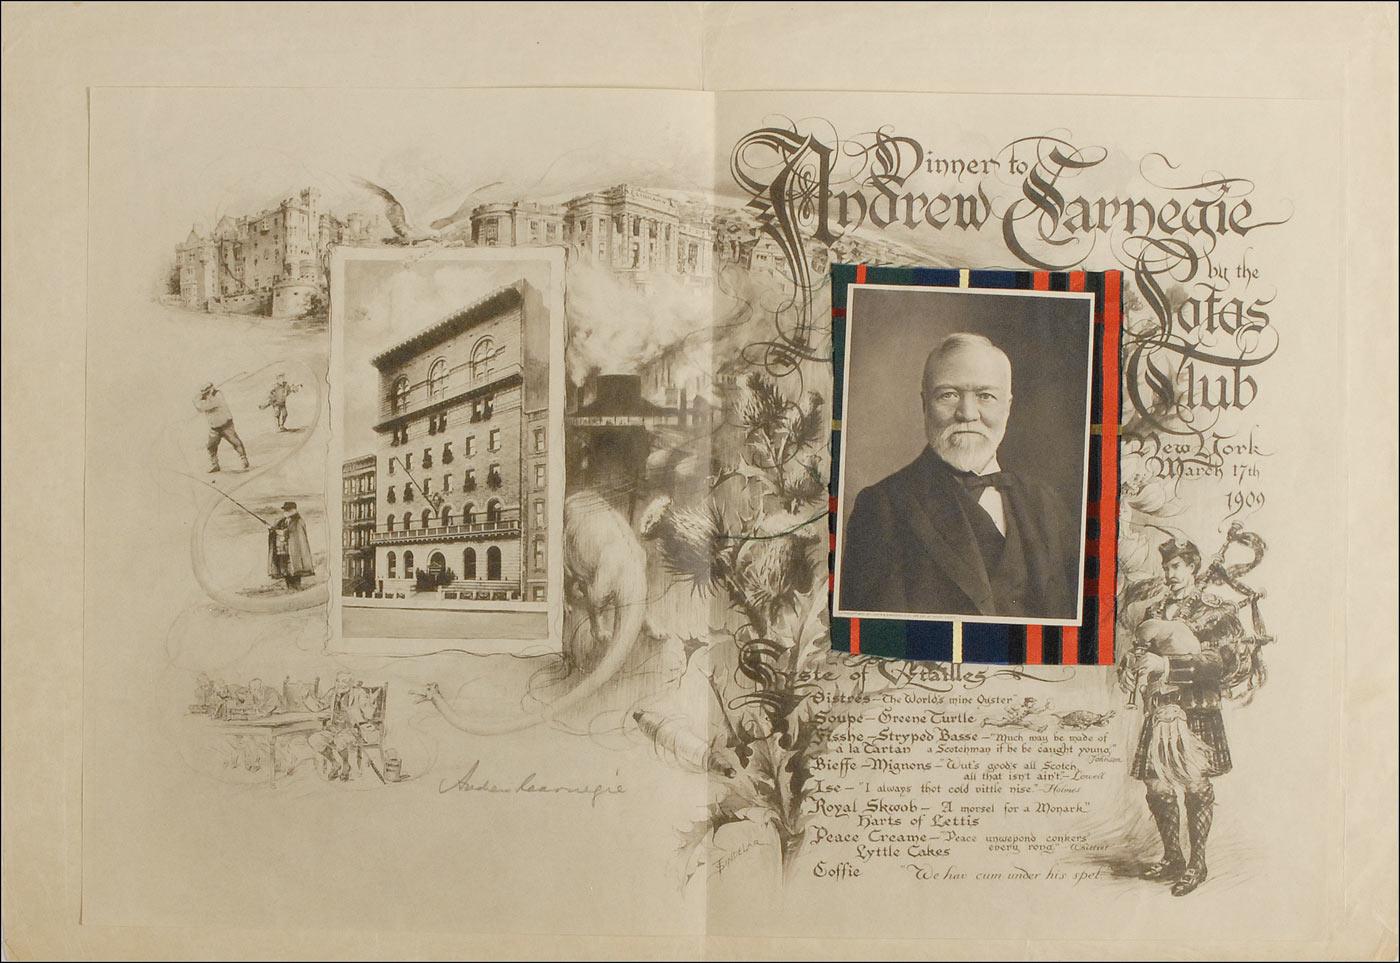 Dinner to
Andrew Carnegie
by the
Lotas
Club
New York
March 17th
1909
Lyste of Vitailles
Oistres—"The World's mine Oyster"
Soupe—Greene Turtle
Fisshe—Stryped Basse—"Much may be made of
à la Tartan a Scotchman if he be caught young,"
Johnson
Bieffe—Mignons—"Wut's good's all Scotch,
all that isn't ain't.—Lowell
Ise—"I always thot cold vittle nise."—Holmes
Royal Skwob—"A morsel for a Monark"
Harts of Lettis
Peace Creame—"Peace unwepond conkers
every rong" Whittier
Lyttle Cakes
Coffie "We hav cum under his spel."
Andrew Carnegie
SINDELAR